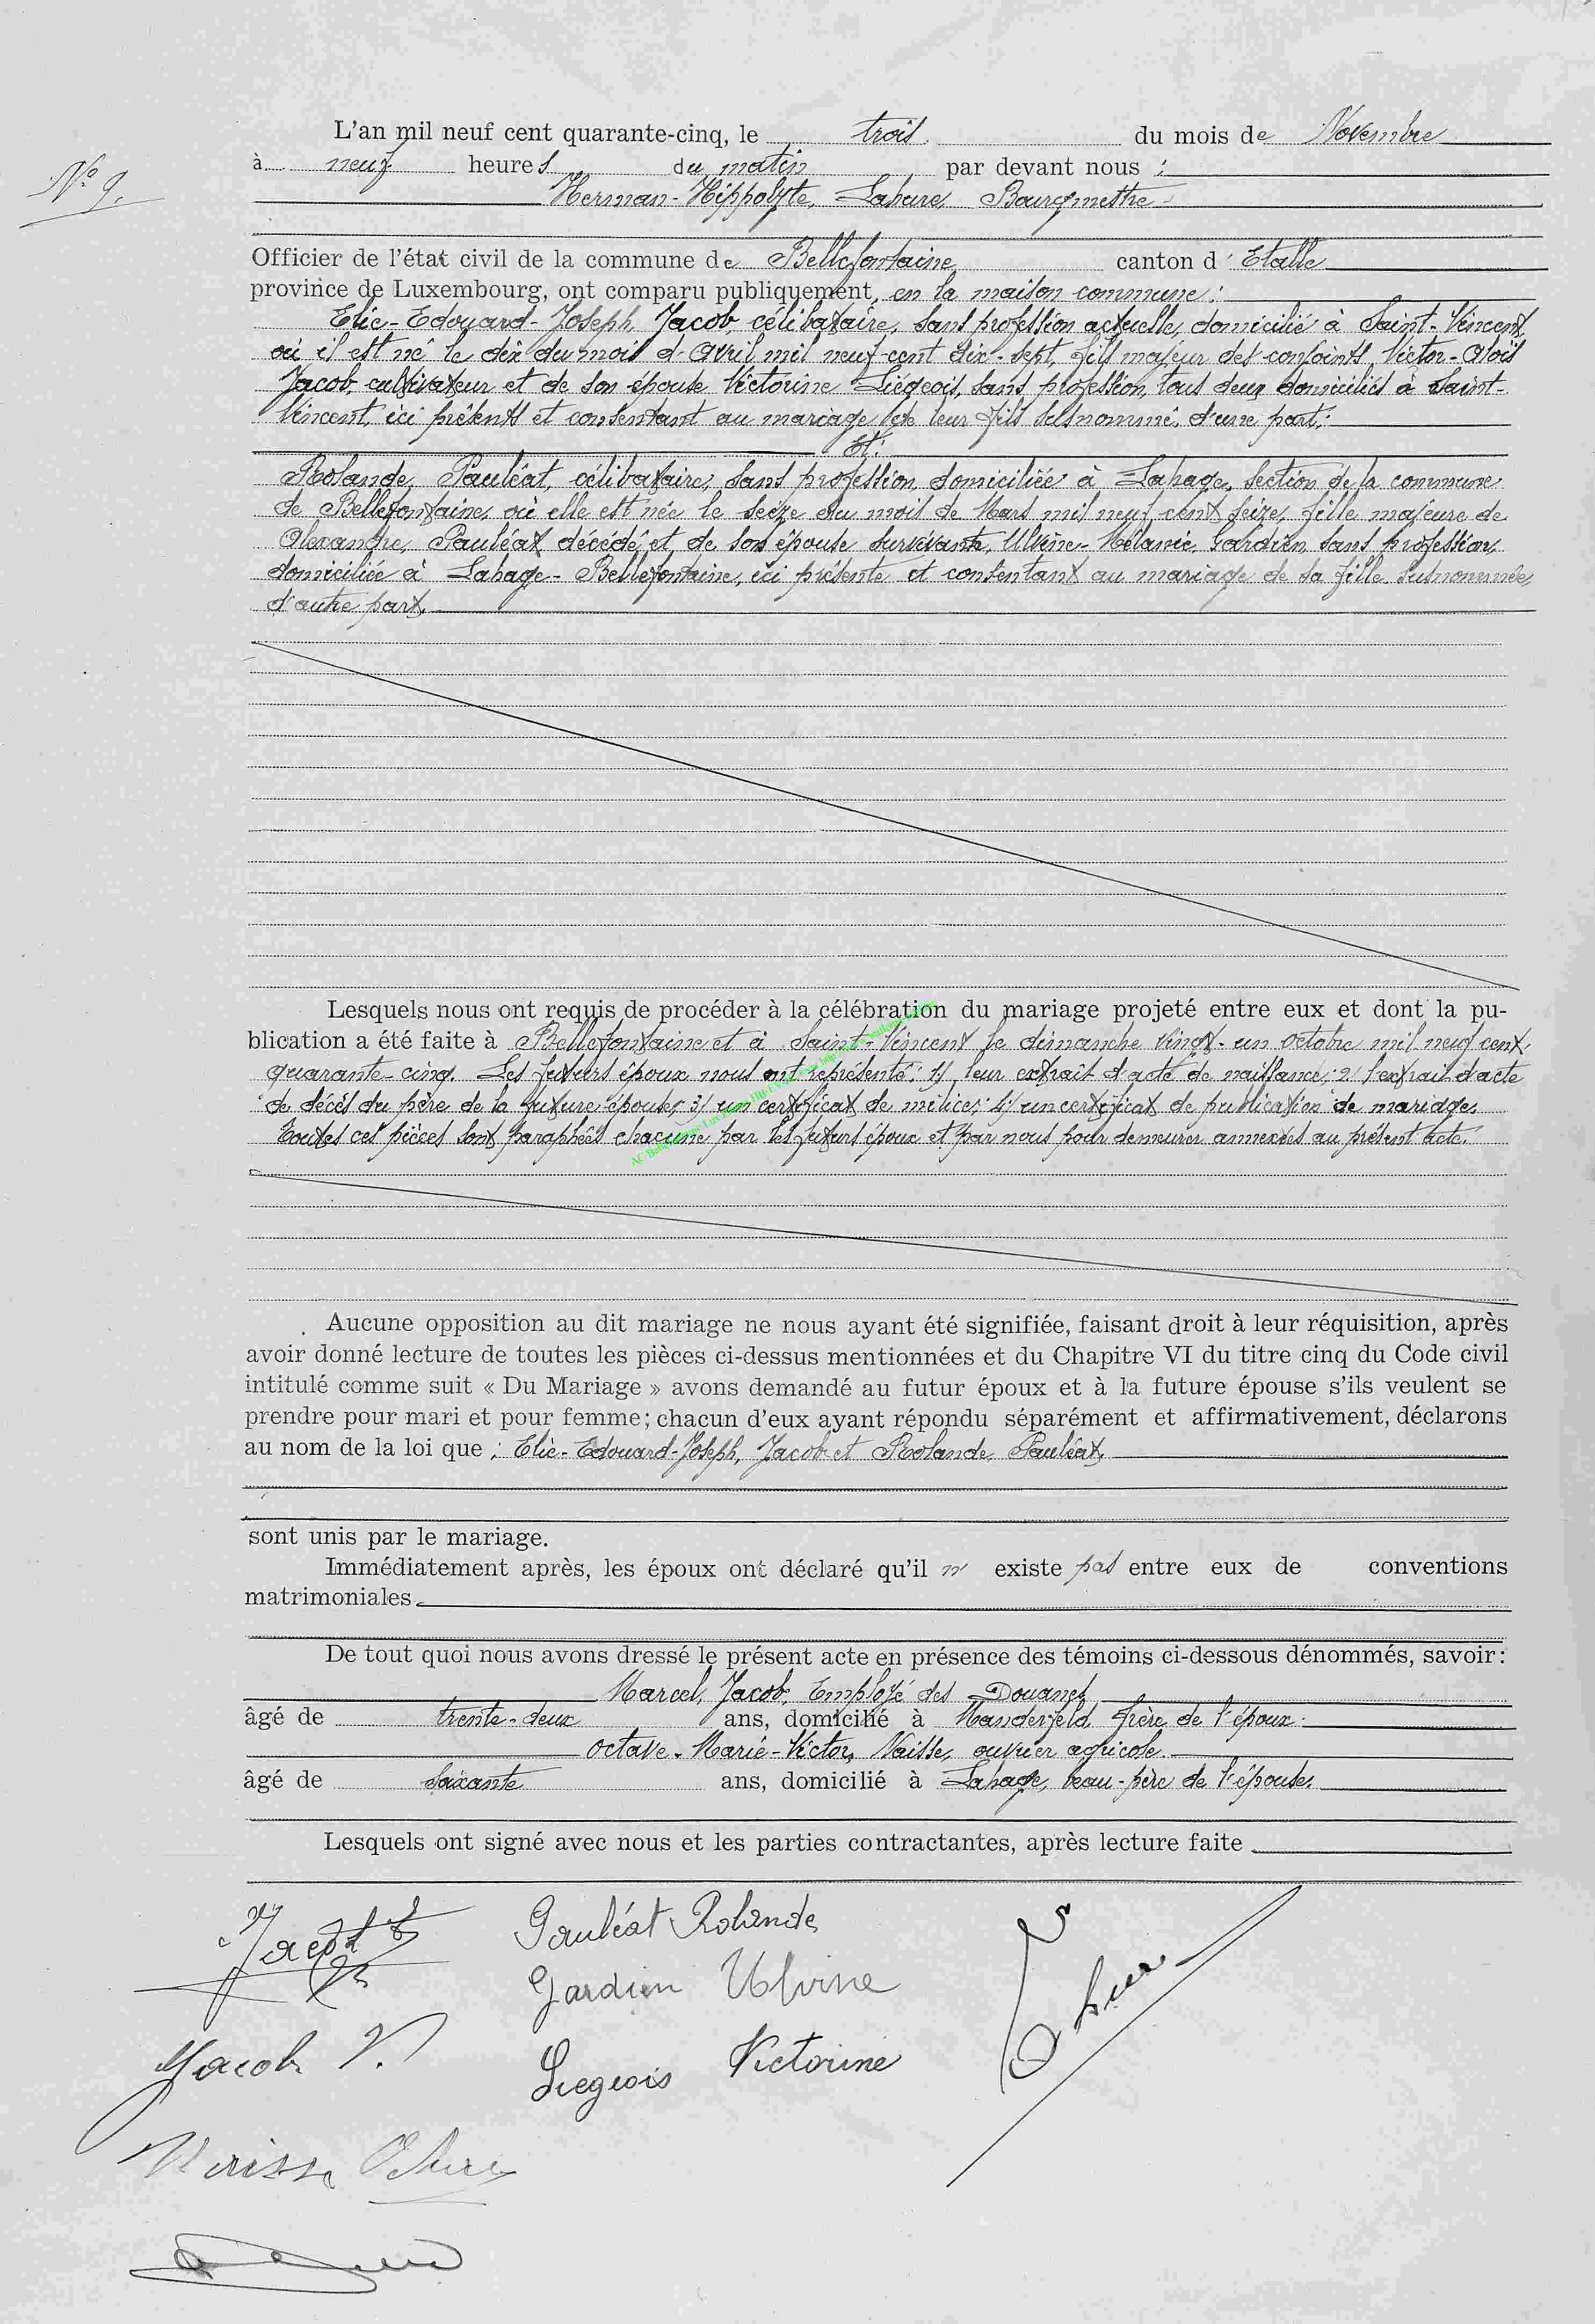 L'an mil neuf cent quarante-cinq, le trois du mois de Novembre
N° 9.
à neuf heures du matin par devant nous :
Herman-Hippolyte, Lahure, Bourgmestre
Officier de l'état civil de la commune de Bellefontaine canton d'Etalle
province de Luxembourg, ont comparu publiquement, en la maison commune :
Elie-Edouard-Joseph, Jacob, célibataire, sans profession actuelle, domicilié à Saint-Vincent,
où il est né le dix du mois d'Avril mil neuf cent dix-sept, fils majeur des conjoints Victor-Aloïs
Jacob, cultivateur et de son épouse Victorine Liégeois, sans profession, tous deux domiciliés à Saint-
Vincent, ici présents et consentant au mariage de leur fils susnommé, d'une part :
Et :
Rolande, Pauléat, célibataire, sans profession, domiciliée à Lahage, section de la commune
de Bellefontaine, où elle est née le seize du mois de Mars mil neuf cent seize, fille majeure de
Alexandre, Pauléat, décédé et de son épouse survivante, Ulvine-Mélanie, Gardien, sans profession,
domiciliée à Lahage-Bellefontaine, ici présente et consentant au mariage de sa fille susnommée,
d'autre part,
Lesquels nous ont requis de procéder à la célébration du mariage projeté entre eux et dont la pu-
blication a été faite à Bellefontaine et à Saint-Vincent le dimanche vingt-un octobre mil neuf cent
quarante-cinq. Les futurs époux nous ont représenté : 1) leur extrait d'acte de naissance; 2) l'extrait d'acte
de décès du père de la future épouse; 3) un certificat de milice; 4) un certificat de publication de mariage.
Toutes ces pièces sont paraphées chacune par les futurs époux et par nous pour demeurer annexées au présent acte.
Aucune opposition au dit mariage ne nous ayant été signifiée, faisant droit à leur réquisition, après
avoir donné lecture de toutes les pièces ci-dessus mentionnées et du Chapitre VI du titre cinq du Code civil
intitulé comme suit « Du Mariage » avons demandé au futur époux et à la future épouse s'ils veulent se
prendre pour mari et pour femme; chacun d'eux ayant répondu séparément et affirmativement, déclarons
au nom de la loi que : Elie-Edouard-Joseph, Jacob et Rolande, Pauléat,
sont unis par le mariage.
Immédiatement après, les époux ont déclaré qu'il n' existe pas entre eux de conventions
matrimoniales.
De tout quoi nous avons dressé le présent acte en présence des témoins ci-dessous dénommés, savoir :
Marcel, Jacob, Employé des Douanes
âgé de trente-deux ans, domicilié à Manderfeld, frère de l'époux.
Octave-Marie-Victor, Naisse, ouvrier agricole
âgé de soixante ans, domicilié à Lahage, beau-père de l'épouse.
Lesquels ont signé avec nous et les parties contractantes, après lecture faite
Jacob Pauléat Rolande
Gardien Ulvine
Jacob V. Liegeois Victorine